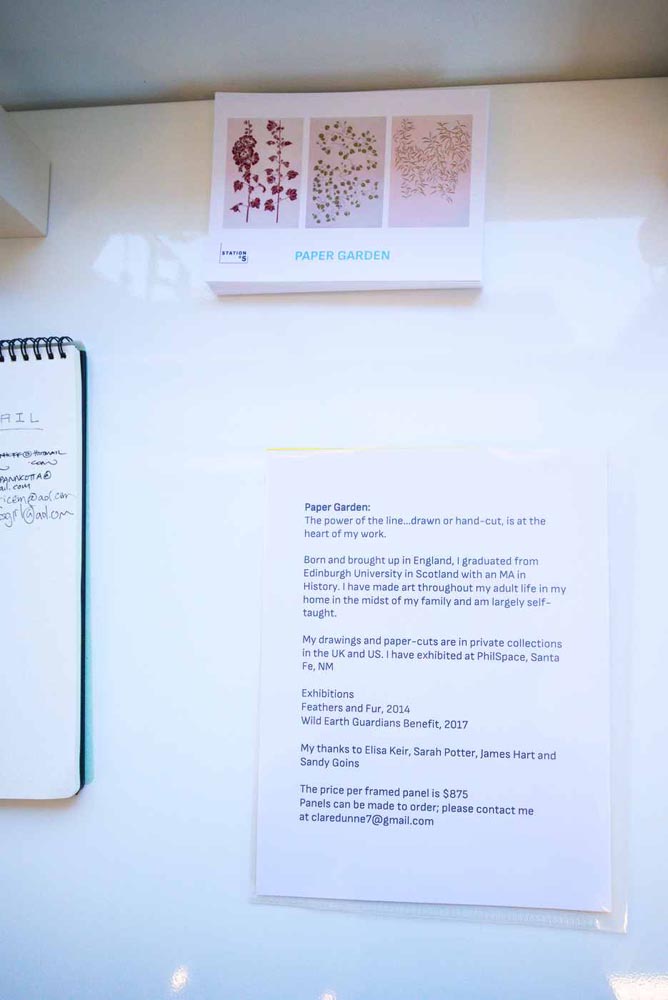 STATION
n5
PAPER GARDEN
AIL
ail.com
@aol.com
@aol.com
Paper Garden:
The power of the line...drawn or hand-cut, is at the
heart of my work.
Born and brought up in England, I graduated from
Edinburgh University in Scotland with an MA in
History. I have made art throughout my adult life in my
home in the midst of my family and am largely self-
taught.
My drawings and paper-cuts are in private collections
in the UK and US. I have exhibited at PhilSpace, Santa
Fe, NM
Exhibitions
Feathers and Fur, 2014
Wild Earth Guardians Benefit, 2017
My thanks to Elisa Keir, Sarah Potter, James Hart and
Sandy Goins
The price per framed panel is $875
Panels can be made to order; please contact me
at claredunne7@gmail.com